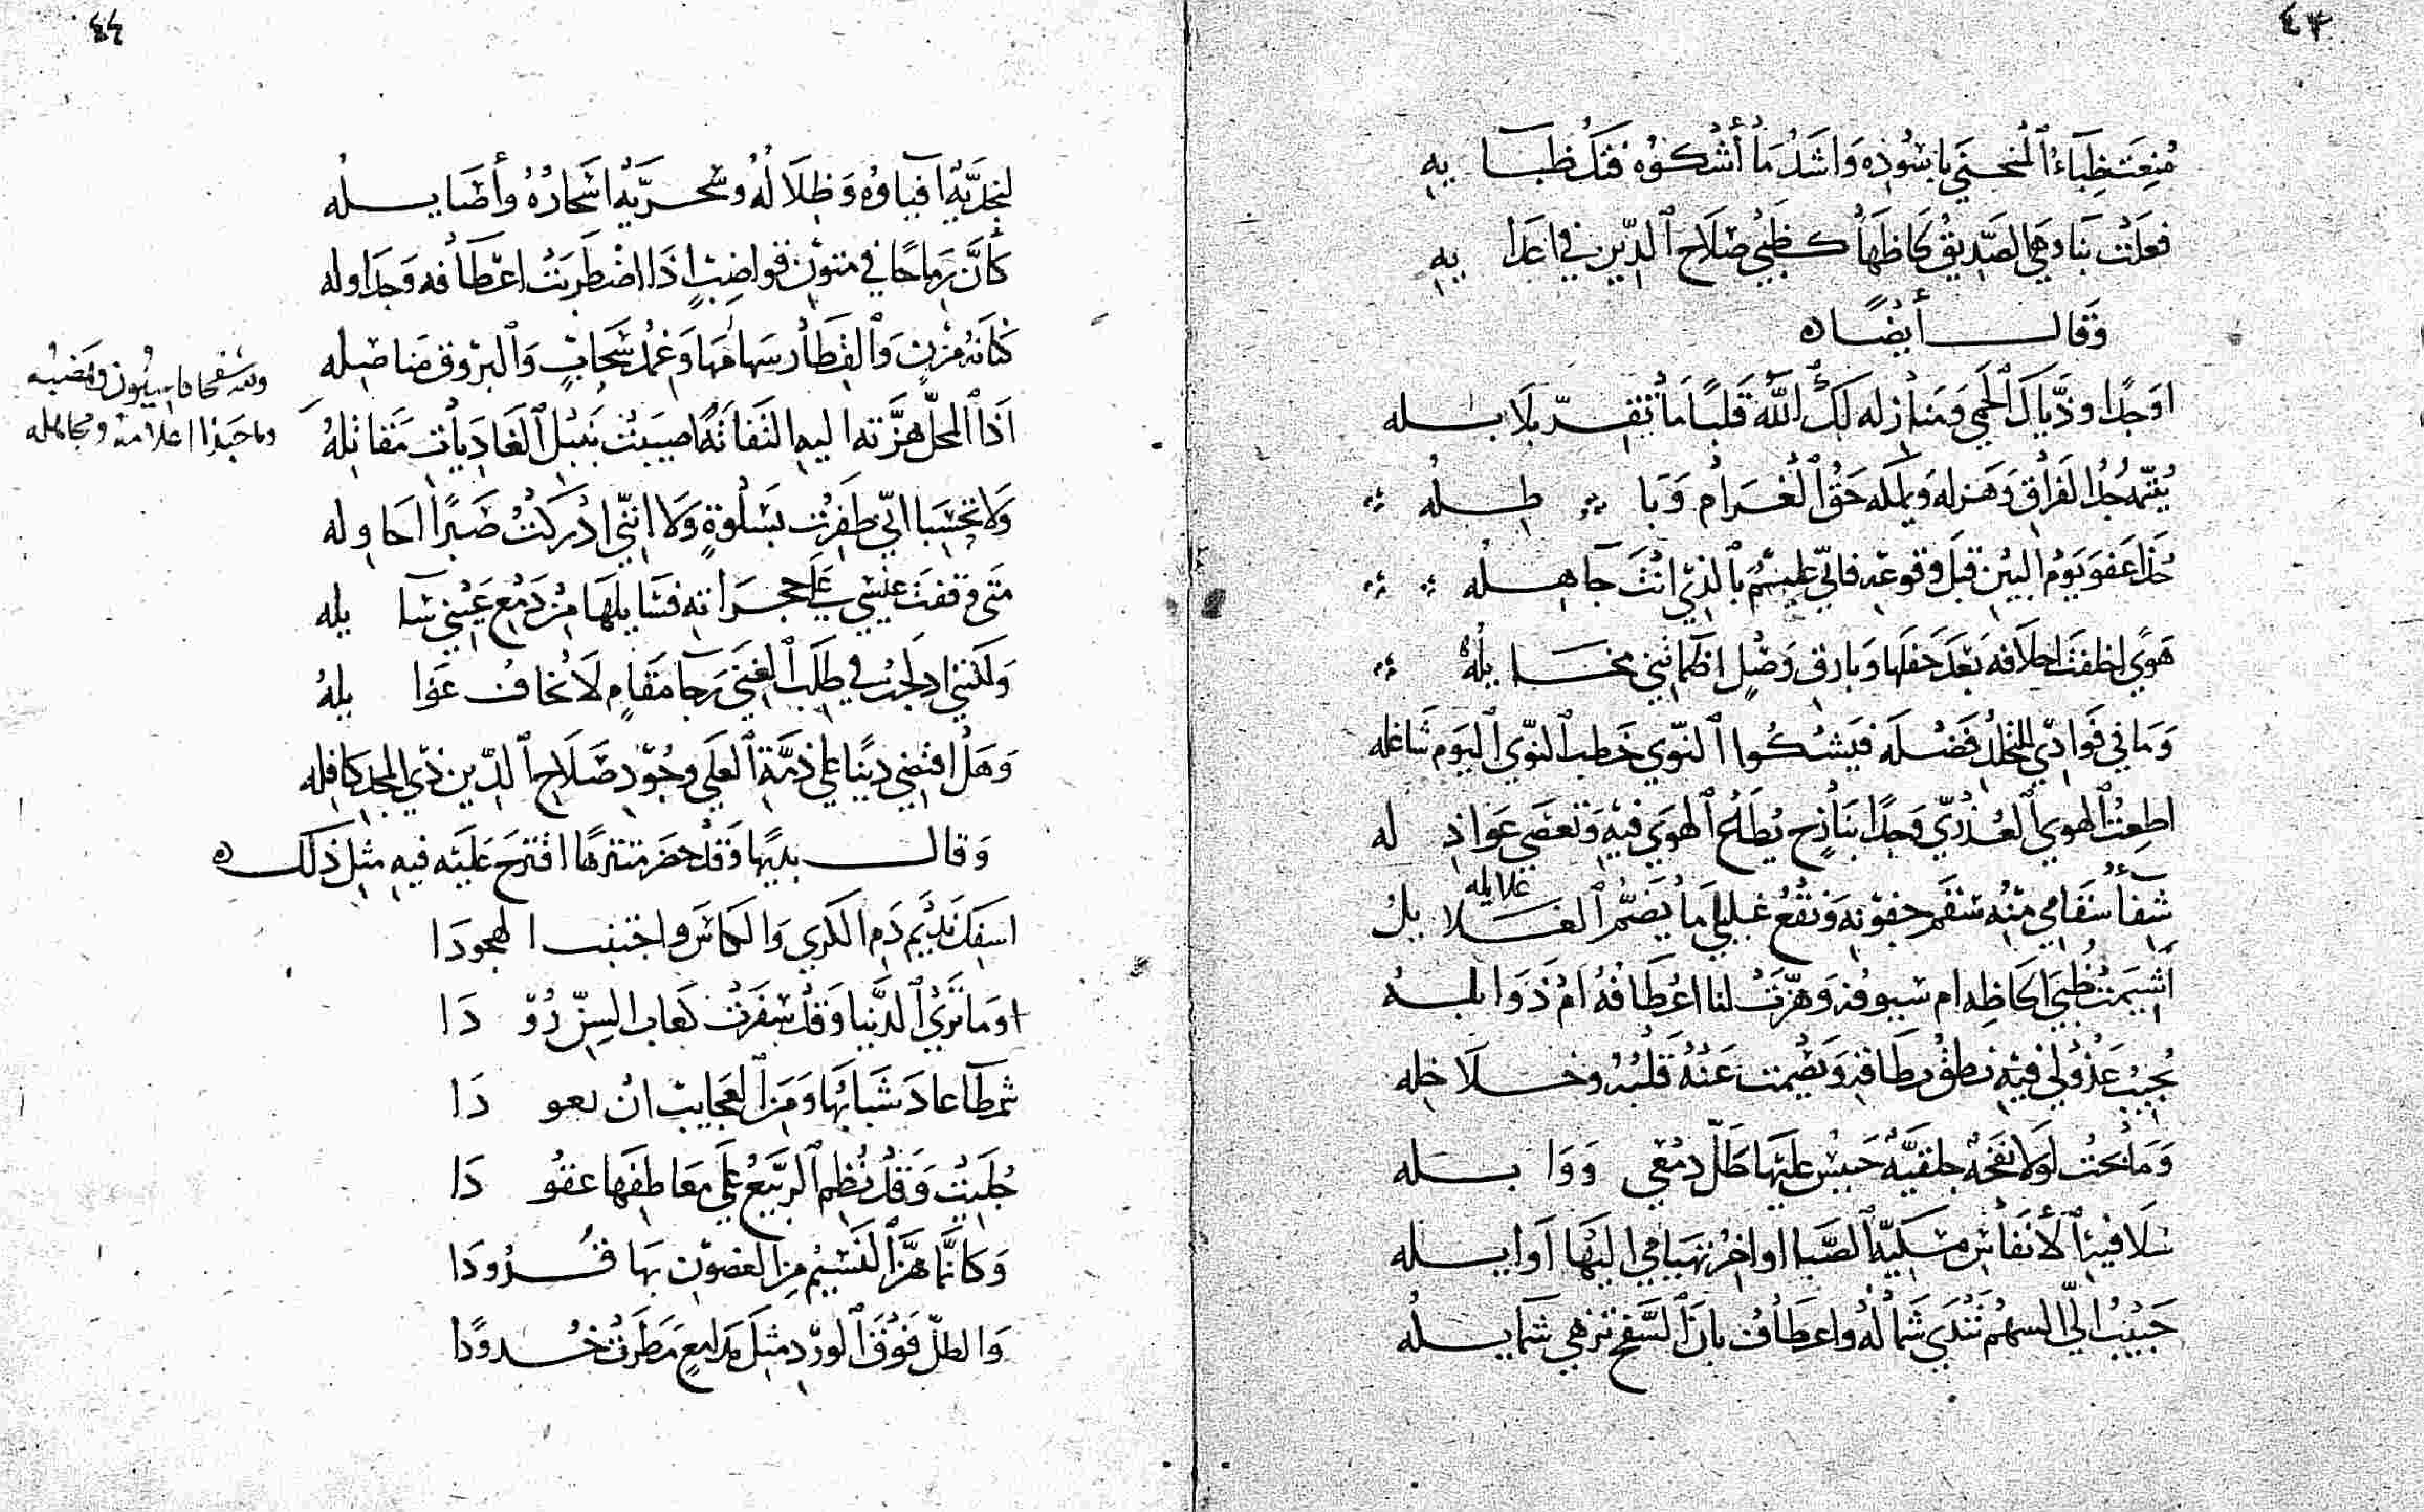 ٤٣
مُنِعَتْ ظِبَآءُ ٱلْمُنحَنَى بِاسُودِهِ وَاشَدُّ مَا أَشْكُوْهُ فَتْكُ ظبَـا بِهِ
فعَلَتْ بنَا وهيَ الصّدِيقُ لحَاظهَا كَظُبي صَلَاح ٱلدِّين في اعدَا يهِ
وَقَالــ أيضًا ه
اوَجْدًا وذَيَّاكَ ٱلحَمِي ومَنازله لَكَ ٱللّهُ قَلبًا مَا تَقِــرّ بلَابـله
يُتيّمهُ جُدُّ الفرَاق وَهَزله وَيملكه حَقُّ ٱلْغَـرَام وَبَا طِــلُه
خُذَا عَفوَ يَوْم البَيْن قَبلَ وقوعِه فانّي عليْمٌ بٱلذي انتَ جَاهِــلُه
هَوًى اخلفتْ اخلَافه بَعدَ حَفلهَا وَبارق وَصْلٍ اظمَاتْني مخـَـا يلُهُ
وَمَا في فؤَادي للمنَازل فَضْـلَه فيَشْكُوا ٱلنّوَى خَطبُ ٱلنّوَى ٱليَوم شَاغله
اطعْتُ ٱلهوي ٱلعُذْرِيّ وَجدًا بنَازِحٍ يُطَاعُ ٱلهوَي فيْهِ وَتعصَي عَوَاذِ له
شِفآءُ سَقَامي مِنْهُ سُقْم جفوْنِهِ وَنقْعُ غَليلي مَا يَضُمُّ ٱلغَــلَا يلُ
غلايله
أشِيْمَتْ ظُبَى الحَاظِه ام سيوفه وَهزّتْ لنا اعْطَافُهُ امْ ذَوَابلـهُ
يُجيْبُ عَذُولي فيْهِ نطقُ نِطَاقه وَيَصْمت عَنْهُ قلْبُهُ وخـلَاخله
وَمَا بحتُ لَولَا نفحَةٌ جلقيّهٌ حَبيْسٌ عليْهَا طَلّ دمْعي وَوَا بـله
سُلَافيْهُ ٱلأَنفَاس مسكيّهُ ٱلصَّبا اواخرُ تهيَامي اليْهَا أوَايــله
حَبيْبٌ اليّ السهمُ تَنْدَي شَمالُهُ واعطَافُ بان ٱلسَّفح تزهي شمَايـلُه
٤٤
لنجديّةٌ افيَاوُه وَظِلَالُهُ وسحـريّةٌ اسْحَارُهُ وأَصَايــلُه
كأنّ رمَاحًا في متوْن قواضِبٍ اذَا اضْطرَبتْ اعْطَافه وَجدَاوله
كنَانهُ مُزْن وَٱلقِطَارُ سهَامهَا وَغِمدُ سَحَابٍ وَٱلبرُوق مَناصِله
اذَا ٱلمَحلُ هزّته اليهِ التفاتةٌ اصيْبَتْ بنَبْل ٱلغَادِيَاتِ مَقَاتلهُ
ولله سَفحا قاسيون وهضبه
وما حبّذا اعلامه ومجاهله
وَلَا تحْسَبا انّي ظفرْت بسَلْوَةٍ وَلَا اننّي ادْركتُ صَبْرًا احَاوله
مَتَى وقفتْ عيْسي عَلَى حجـرَاتِه فسَايلهَا منْ دَمْع عَيْني سَا يله
وَلكنّني ادلَجْتُ في طَلَب ٱلغِنَى رجَآ مَقَامٍ لَا تُخَافُ غَوَا يلهُ
وَهَلْ اقتضي ديْنًا علي ذمّةِ ٱلعلَي وجُوْد صَلَاح ٱلدّين ذي ٱلمجدِ كافله
وَقالــ بديْهًا وَقدْ حضَر متنزهًا اقترحَ عَليْه فيه مثلَ ذلكَ ه
اسفكْ نديْم دَم الكري وَالكاسَ واجتنب الهجودَا
اومَا تَرَي ٱلدّنيا وَقدْ سَفرَتْ كعَاب السِنّ رُوْ دَا
شمطَآ عادَ شَبَابُهَا وَمنَ ٱلعجَايب انْ تعو دَا
جُلِيَتْ وَقدْ نَظمَ ٱلربيعُ عَلَي مَعَاطفهَا عقوْ دَا
وَكَانّمَا هَزّ ٱلنسِيْم مِنَ الغصوْنِ بهَا قُــدُودَا
وَالطلّ فَوْقَ ٱلورْدِ مثلَ مدَامعٍ مَطَرتْ خـُـدودًا